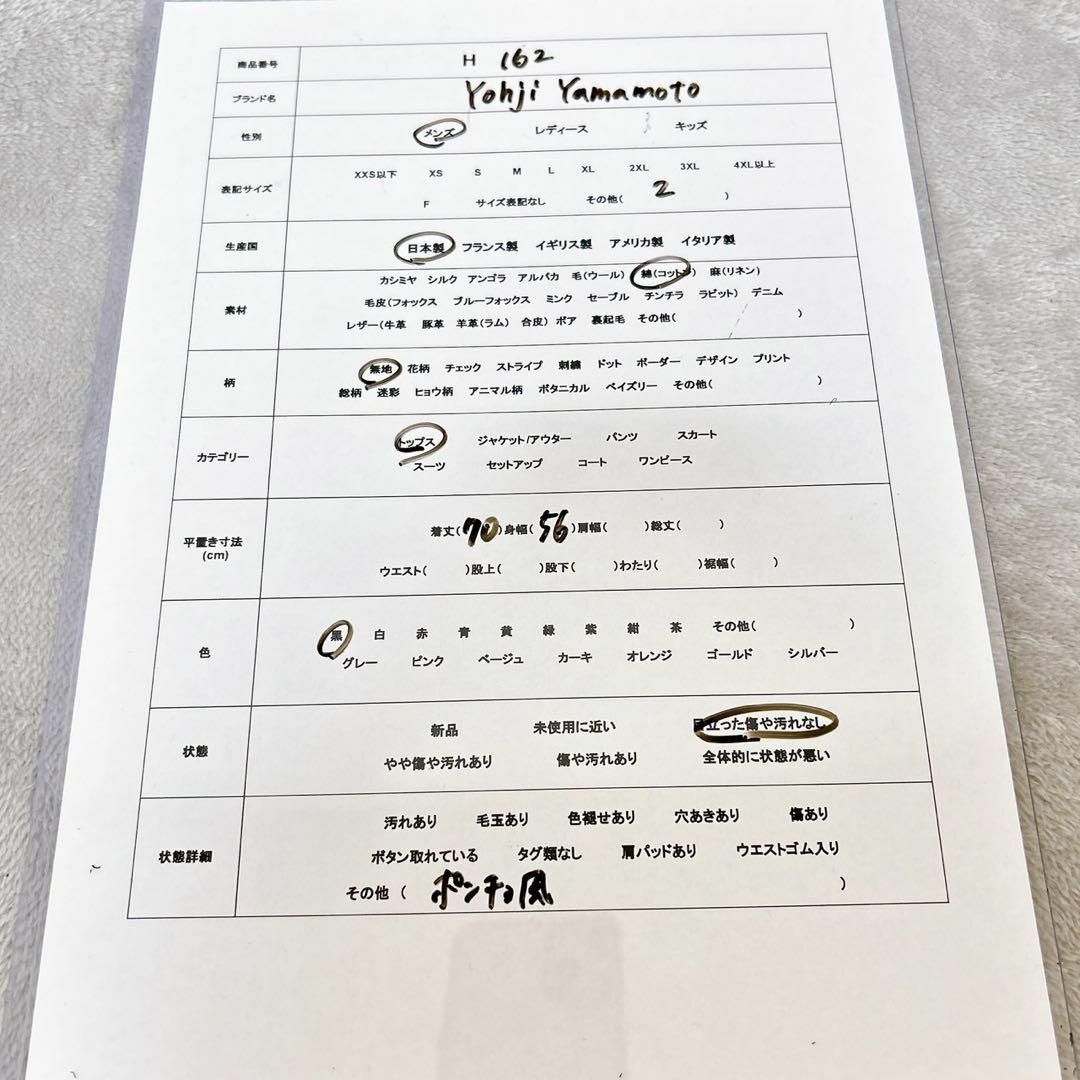 商品番号 H 162
ブランド名 Yohji Yamamoto
性別 メンズ レディース キッズ
表記サイズ XXS以下 XS S M L XL 2XL 3XL 4XL以上
F サイズ表記なし その他( 2 )
生産国 日本製 フランス製 イギリス製 アメリカ製 イタリア製
素材 カシミヤ シルク アンゴラ アルパカ 毛(ウール) 綿(コットン) 麻(リネン)
毛皮(フォックス ブルーフォックス ミンク セーブル チンチラ ラビット) デニム
レザー(牛革 豚革 羊革(ラム) 合皮) ボア 裏起毛 その他( )
柄 無地 花柄 チェック ストライプ 刺繍 ドット ボーダー デザイン プリント
総柄 迷彩 ヒョウ柄 アニマル柄 ボタニカル ペイズリー その他( )
カテゴリー トップス ジャケット/アウター パンツ スカート
スーツ セットアップ コート ワンピース
平置き寸法 (cm) 着丈( 70 )身幅( 56 )肩幅( )総丈( )
ウエスト( )股上( )股下( )わたり( )裾幅( )
色 黒 白 赤 青 黄 緑 紫 紺 茶 その他( )
グレー ピンク ベージュ カーキ オレンジ ゴールド シルバー
状態 新品 未使用に近い 目立った傷や汚れなし
やや傷や汚れあり 傷や汚れあり 全体的に状態が悪い
状態詳細 汚れあり 毛玉あり 色褪せあり 穴あきあり 傷あり
ボタン取れている タグ類なし 肩パッドあり ウエストゴム入り
その他 ( ポンチョ風 )